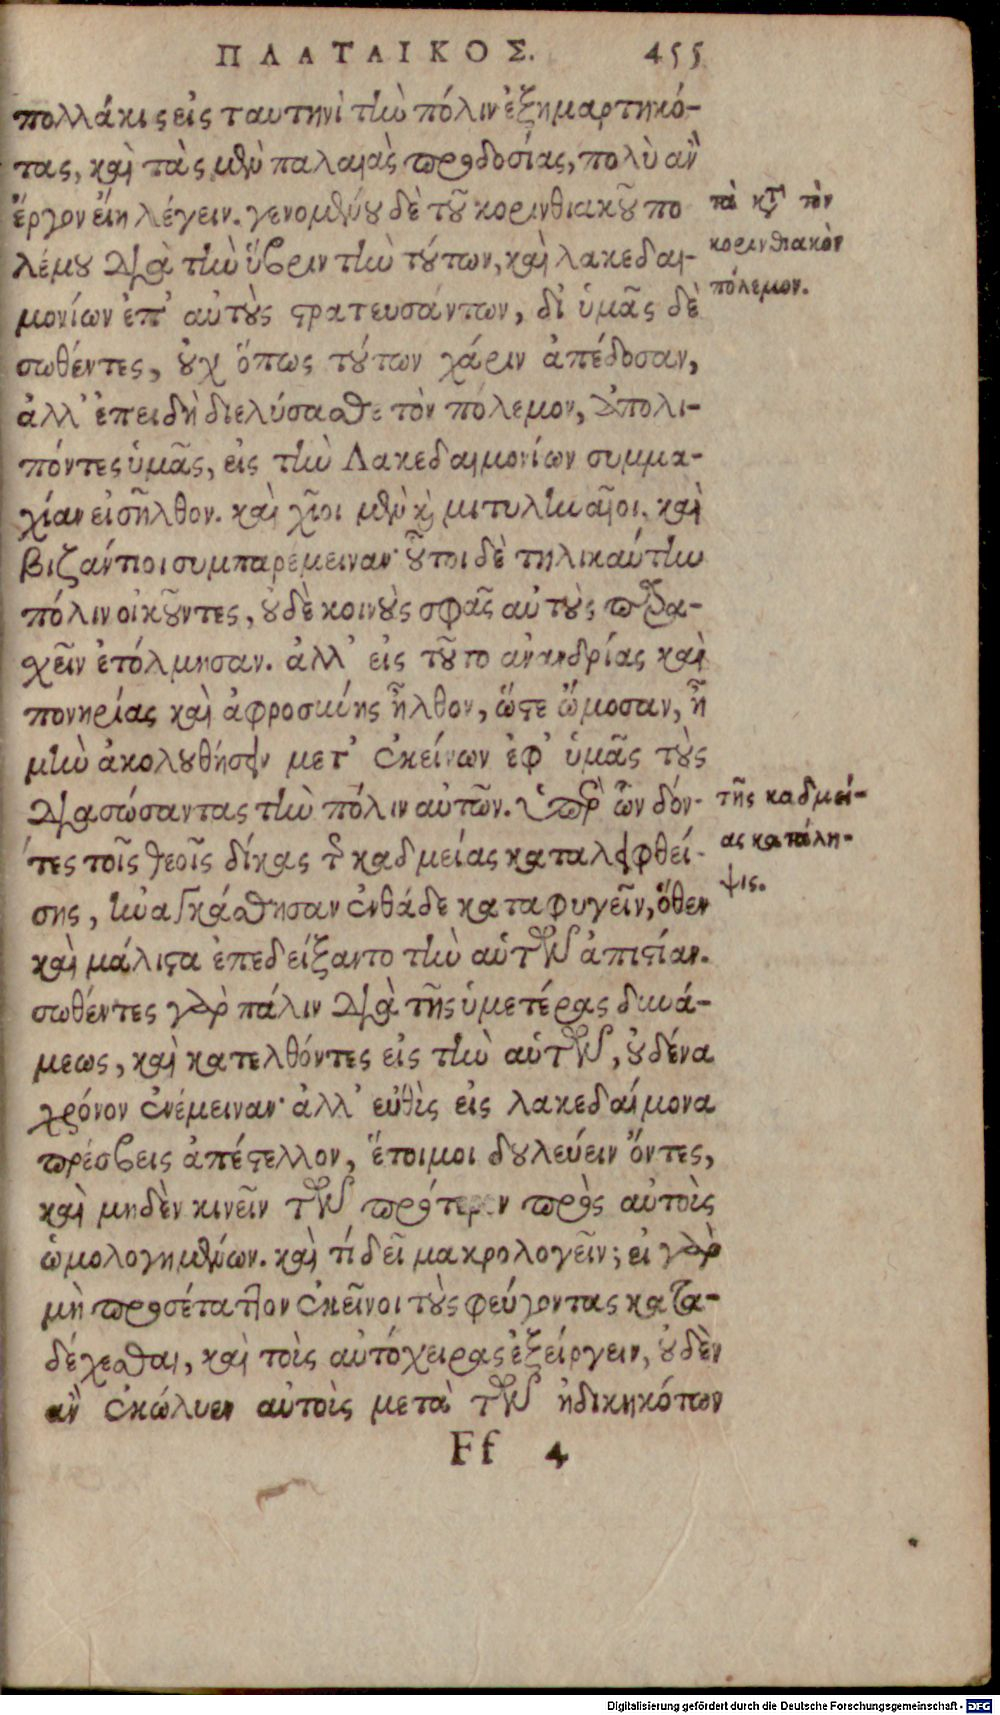 ΠΛΑΤΑΙΚΟΣ. 455
πολλάκις εἰς ταυτηνὶ τὴν πόλιν ἐξημαρτηκό-
τας, καὶ τὰς μὲν παλαιὰς προδοσίας, πολὺ ἂν
ἔργον εἴη λέγειν. γενομένου δὲ τοῦ κορινθιακοῦ πο
λέμου διὰ τὴν ὕβριν τὴν τούτων, καὶ λακεδαι-
μονίων ἐπ' αὐτοὺς στρατευσάντων, δι' ὑμᾶς δὲ
σωθέντες, οὐχ ὅπως τούτων χάριν ἀπέδοσαν,
ἀλλ' ἐπειδὴ διελύσασθε τὸν πόλεμον, ἀπολι-
πόντες ὑμᾶς, εἰς τὴν Λακεδαιμονίων συμμα-
χίαν εἰσῆλθον. καὶ χῖοι μὲν καὶ μιτυληναῖοι. καὶ
βιζάντιοι συμπαρέμειναν· οὗτοι δὲ τηλικαύτην
πόλιν οἰκοῦντες, οὐδὲ κοινοὺς σφᾶς αὐτοὺς παρα-
χεῖν ἐτόλμησαν. ἀλλ' εἰς τοῦτο ἀνανδρίας καὶ
πονηρίας καὶ ἀφροσύνης ἦλθον, ὥστε ὤμοσαν, ἦ
μὴν ἀκολουθήσειν μετ' ἐκείνων ἐφ' ὑμᾶς τοὺς
διασώσαντας τὴν πόλιν αὐτῶν. ὑπὲρ ὧν δόν-
τες τοῖς θεοῖς δίκας τῆς καδμείας καταληφθεί-
σης, ἠναγκάσθησαν ἐνθάδε καταφυγεῖν, ὅθεν
καὶ μάλιστα ἐπεδείξαντο τὴν αὑτῶν ἀπιστίαν.
σωθέντες γὰρ πάλιν διὰ τῆς ὑμετέρας δυνά-
μεως, καὶ κατελθόντες εἰς τὴν αὑτῶν, οὐδένα
χρόνον ἐνέμειναν· ἀλλ' εὐθὺς εἰς λακεδαίμονα
πρέσβεις ἀπέστελλον, ἕτοιμοι δουλεύειν ὄντες,
καὶ μηδὲν κινεῖν τῶν πρότερον πρὸς αὐτοὺς
ὡμολογημένων. καὶ τί δεῖ μακρολογεῖν; εἰ γὰρ
μὴ προσέταττον ἐκεῖνοι τοὺς φεύγοντας κατα-
δέχεσθαι, καὶ τοὺς αὐτόχειρας ἐξείργειν, οὐδὲν
ἂν ἐκώλυεν αὐτοὺς μετὰ τῶν ἠδικηκότων
Ff 4
τὰ κατὰ τὸν
κορινθιακὸν
πόλεμον.
τῆς καδμεί-
ας κατάλη-
ψις.
Digitalisierung gefördert durch die Deutsche Forschungsgemeinschaft - DFG